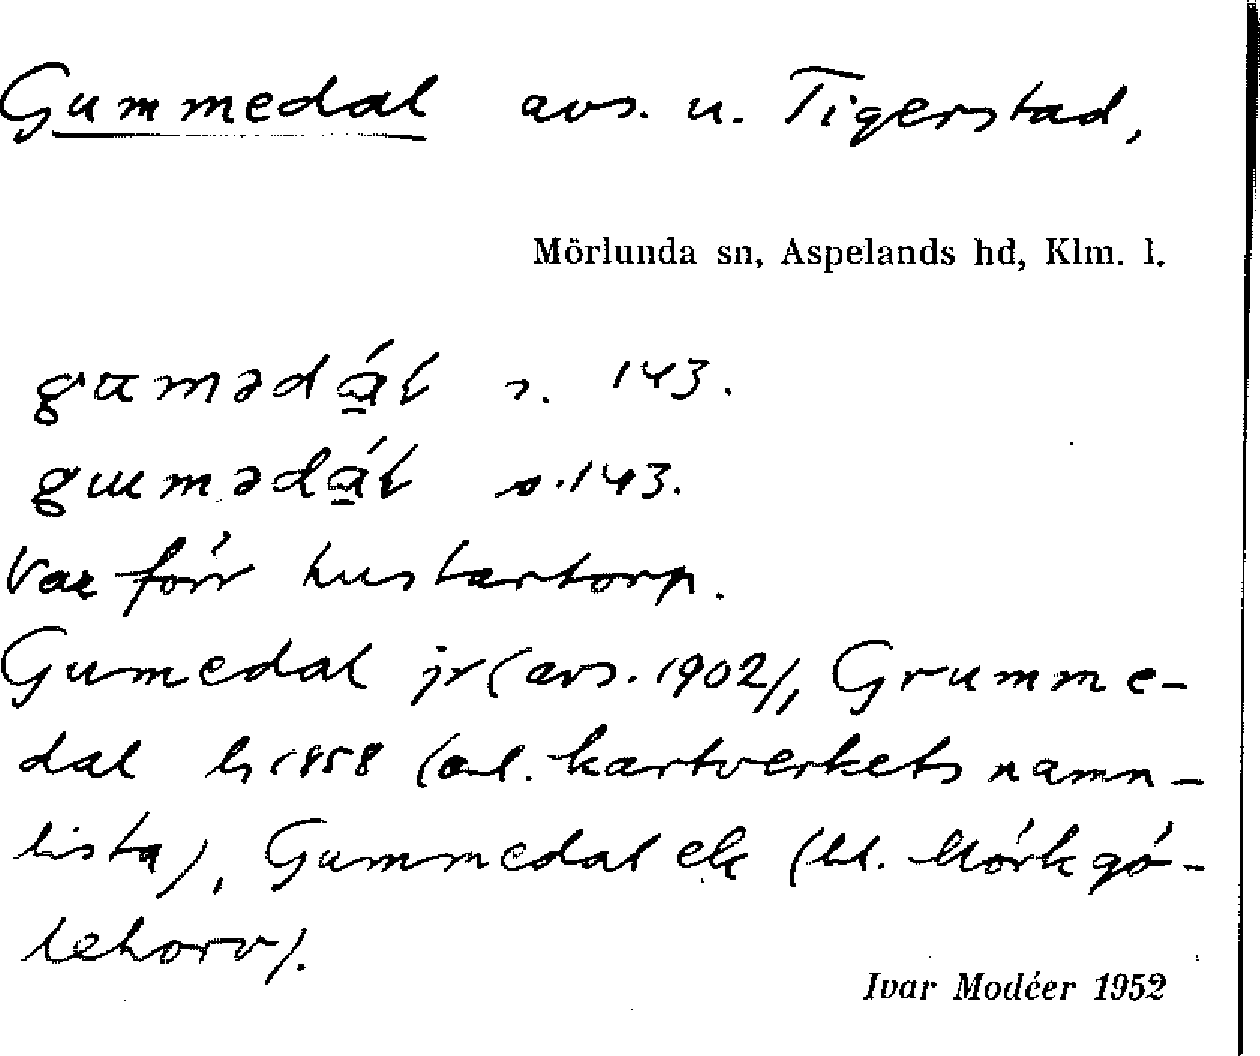 Gummedal avs. u. Tigerstad,
Mörlunda sn, Aspelands hd, Klm. l.
s. 143.
s. 143.
Var förr hustartorp.
Gumedal jr (avs. 1902), Grumme-
dal hs 1858 (enl. kartverkets namn-
lista), Gummedal ek (bl. Mörkgö-
lehorv).
Ivar Modéer 1952